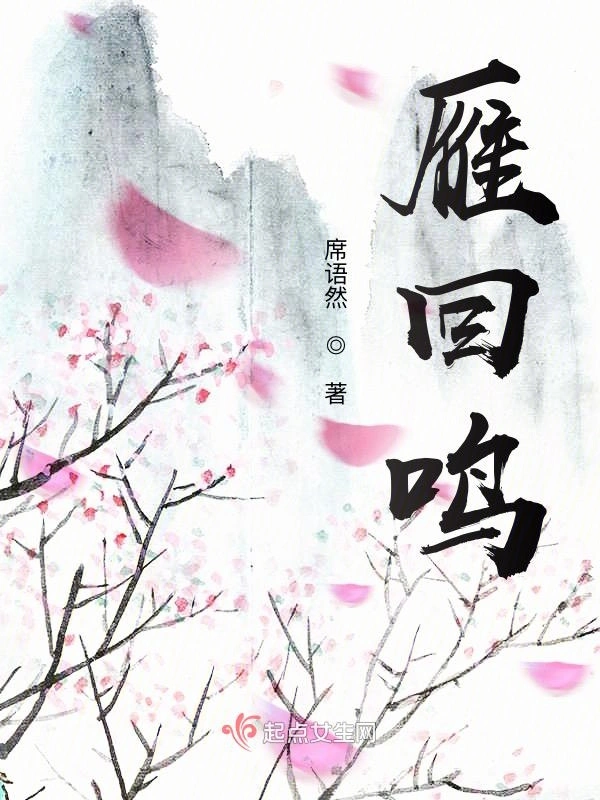 雁回鸣
席语然 ◎ 著
起点女生网